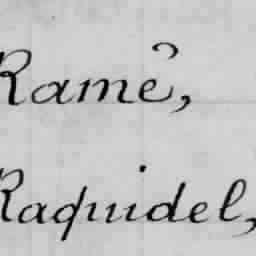 Ramé,
Raquidel,